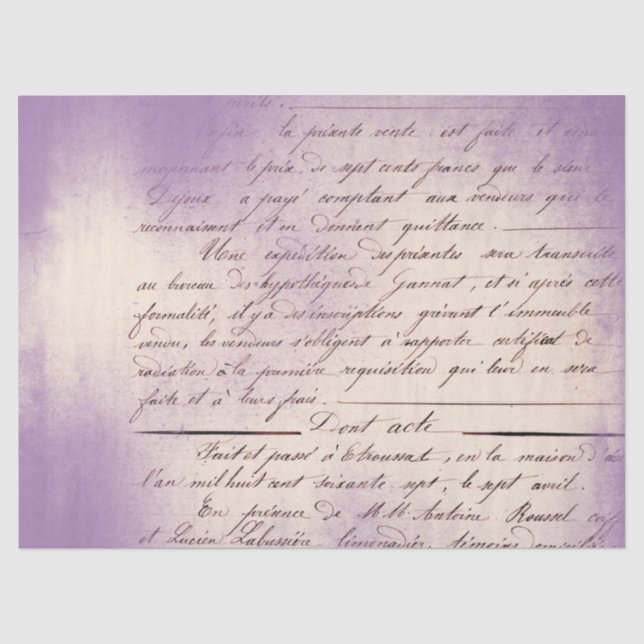 périls.
Enfin la présente vente est faite et
moyennant le prix de sept cents francs que le sieur
Dijoux a payé comptant aux vendeurs qui le
reconnaissent et en donnent quittance.
Une expédition des présentes sera transcrite
au bureau des hypothèques de Gannat, et si après cette
formalité, il y a des inscriptions grévant l'immeuble
vendu, les vendeurs s'obligent à rapporter certificat de
radiation à la première requisition qui leur en sera
faite et à leurs frais.
Dont acte
Fait et passé à Etroussat, en la maison
l'an mil huit cent soixante sept, le sept avril.
En présence de M.M. Antoine Roussel
et Lucien Labussière limonadier, témoins